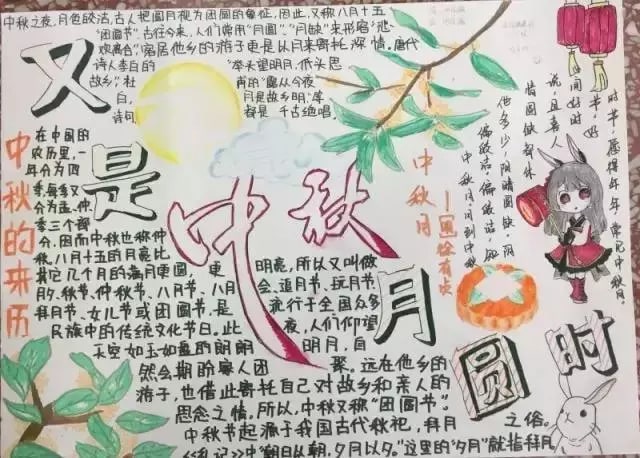 中秋之夜,月色皎洁,古人把圆月视为团圆的象征,因此,又称八月十五
"团圆节"。古往今来,人们常用"月圆"、"月缺"来形容"悲
欢离合",客居他乡的游子更是以月来寄托深情。唐代
诗人李白的"举头望明月,低头思
故乡",杜甫的"露从今夜
白,月是故乡明"等
诗句都是千古绝唱
又是中秋月圆时
中秋的来历
在中国的
农历里,一
年分为四
季,每季又
分为孟、仲、
季三个部
分,因而中秋也称仲
秋。八月十五的月亮比
其它几个月的满月更圆,更明亮,所以又叫做
月夕、秋节、仲秋节、八月节、八月会、追月节、玩月节、
拜月节、女儿节或团圆节,是流行于全国众多
民族中的传统文化节日。此夜,人们仰望
天空如玉如盘的朗朗明月,自
然会期盼家人团聚。远在他乡的
游子,也借此寄托自己对故乡和亲人的
思念之情。所以,中秋又称"团圆节"。
中秋节起源于我国古代秋祀,拜月之俗。
《礼记》中"朝日以朝,夕月以夕。"这里的"夕月"就指拜月
中秋月
中秋月。月到中秋
偏皎洁。偏皎洁,知
他多少,阴晴圆缺。阴
晴圆缺都休
说,且喜人
间好时
节。好
时节,愿得年年,常见中秋月。